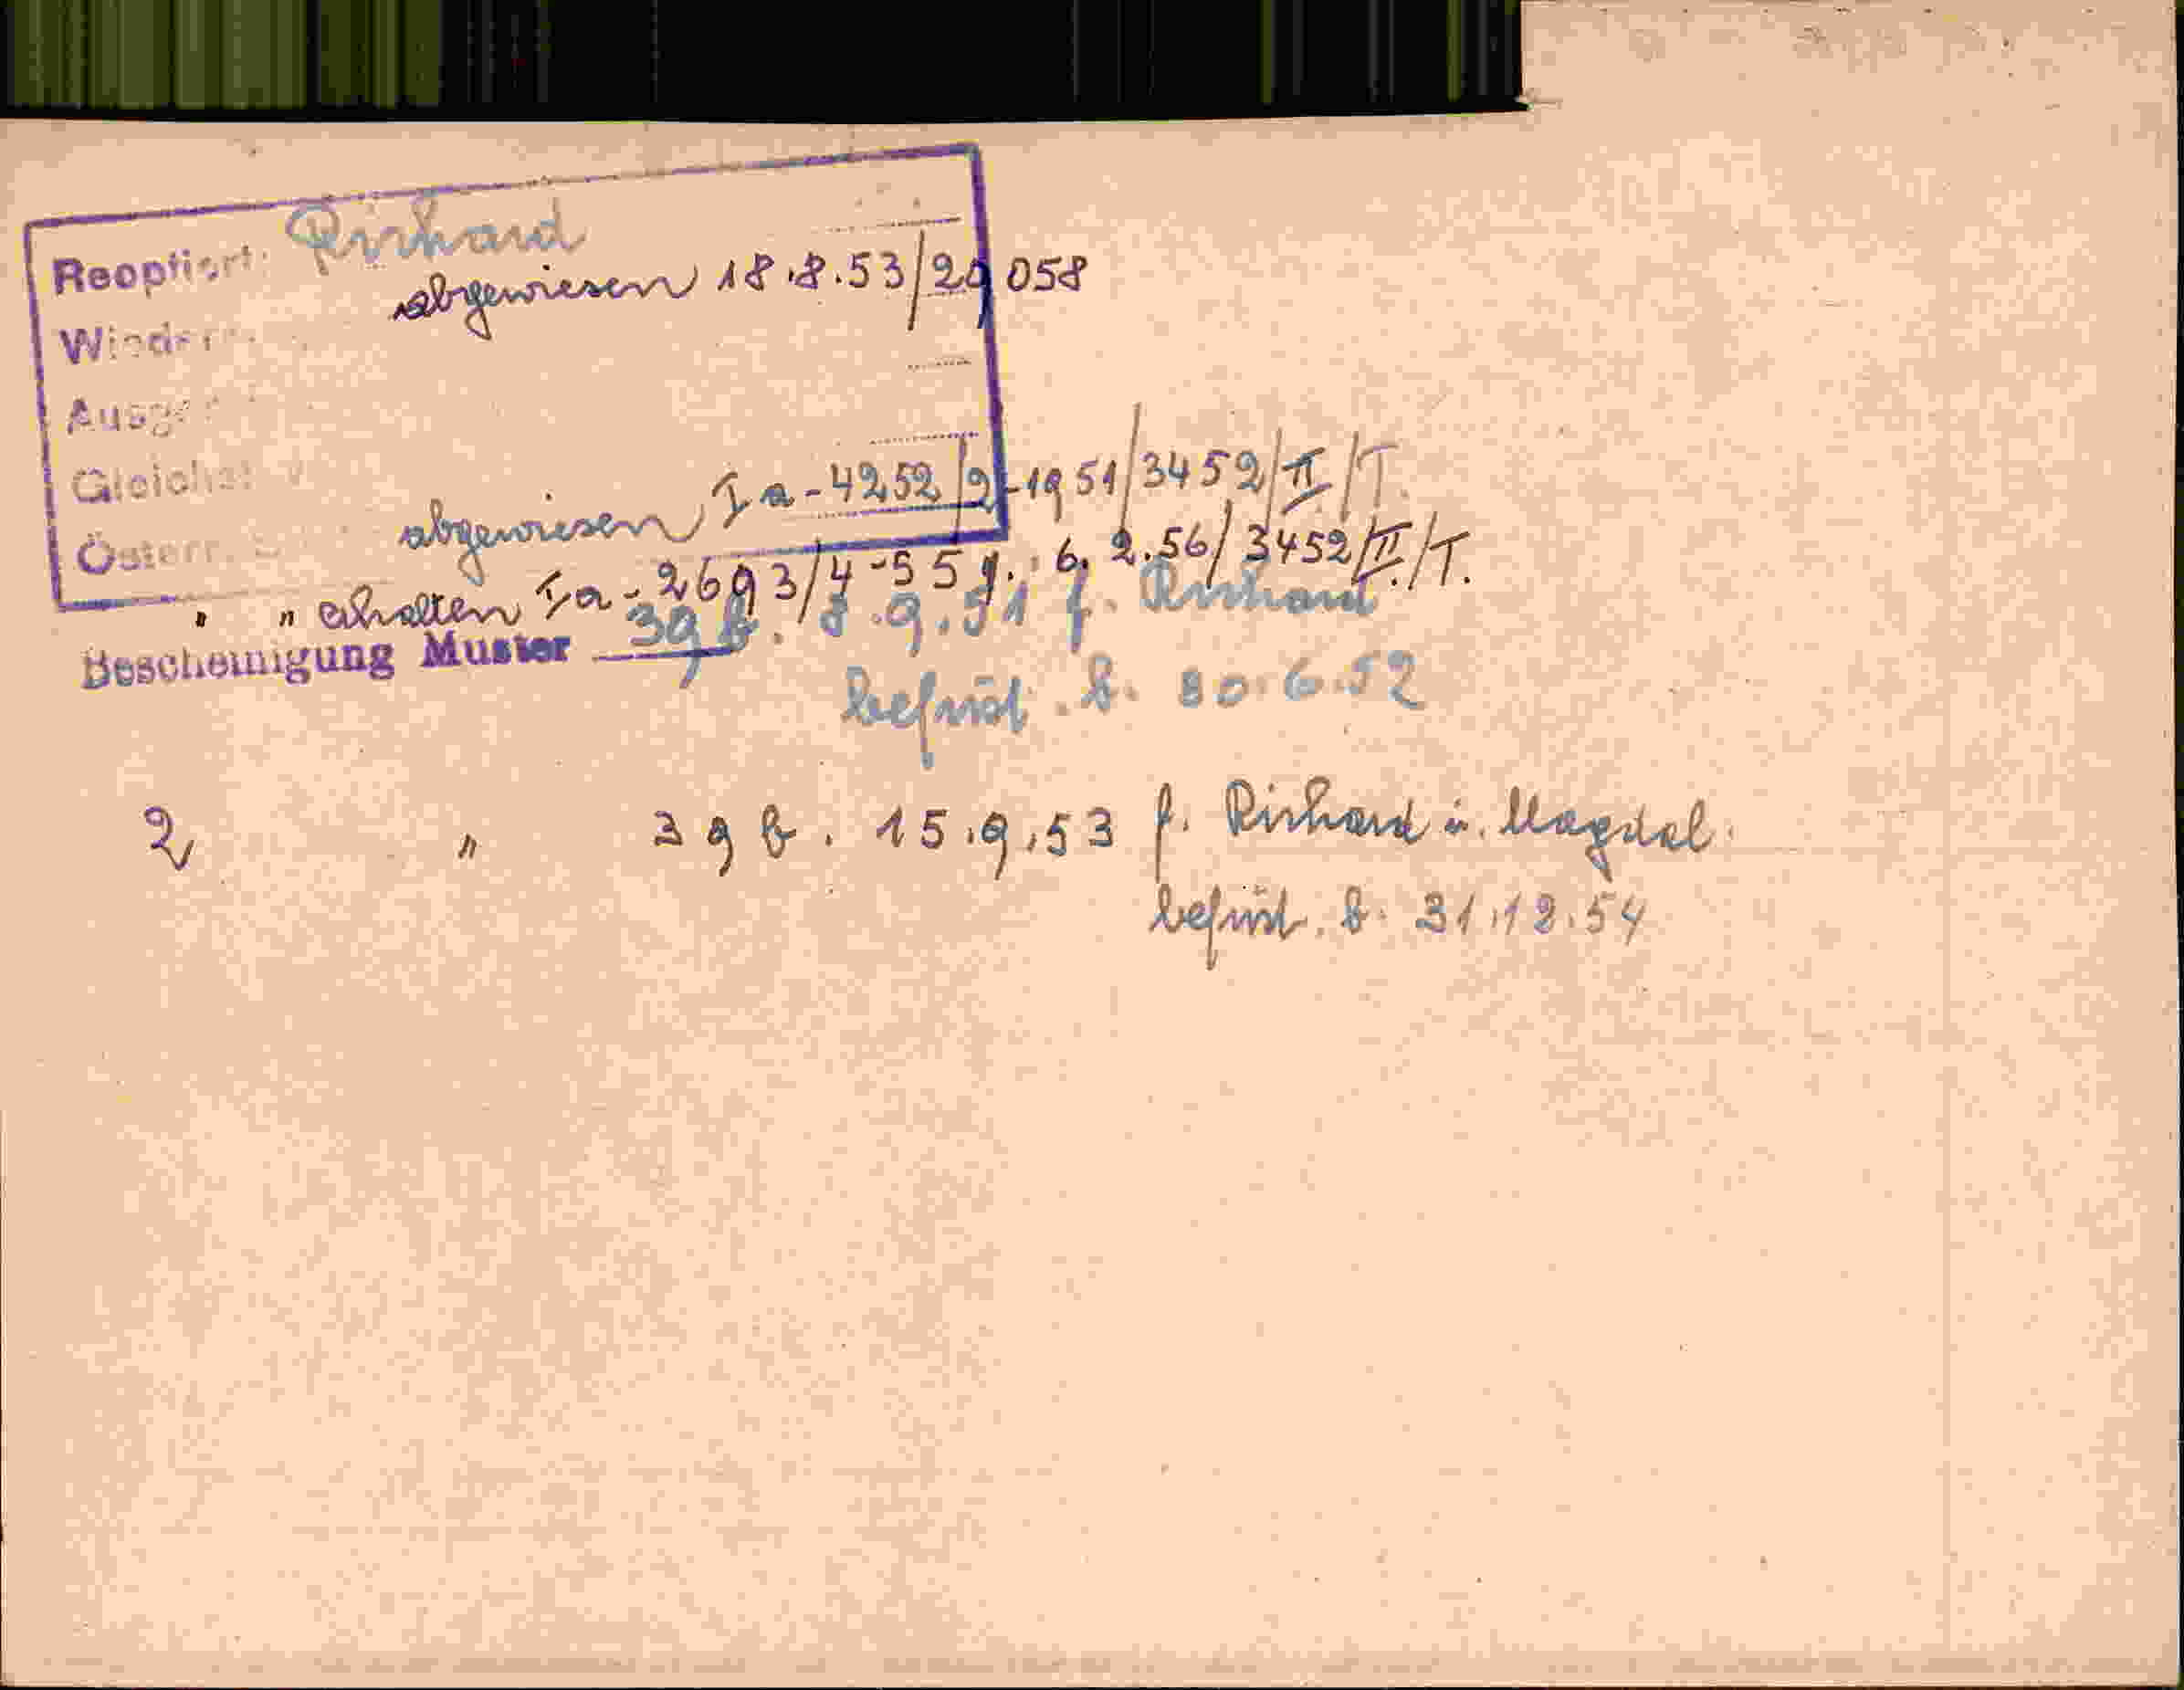 Reoptiert: Richard
abgewiesen 18.8.53/29 058
abgewiesen Ia-4252/2-1951/3452/II/T.
Österr.
" " erhalten Ia-2693/4-55 v. 6.2.56/3452/II./T.
Bescheinigung Muster 39 b. 8.9.51 f. Richard
befrist. b. 30.6.52
2 " 39 b. 15.9.53 f. Richard u. Magdal.
befrist. b. 31.12.54